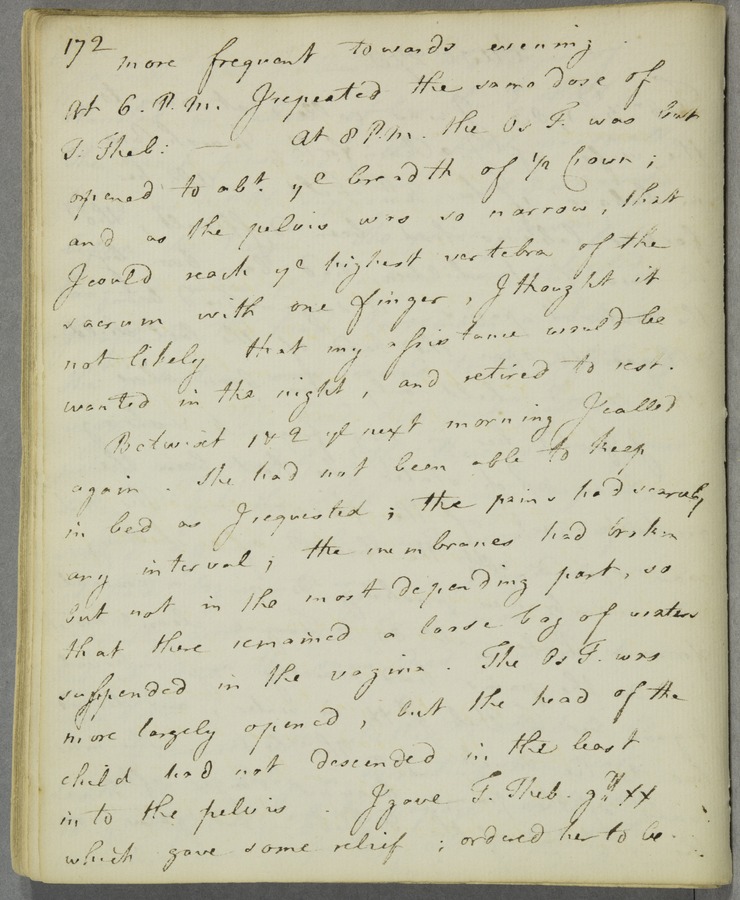 172
more frequent towards evening
At 6. P.M. I repeated the same dose of
T. Theb: — At 8 P.M. the Os T. was but
opened to abt. ye breadth of 1/2 Crown ;
and as the pelvis was so narrow, that
I could reach ye highest vertebra of the
sacrum with one finger, I thought it
not likely that my assistance would be
wanted in the night, and retired to rest.
Betwixt 1 & 2 ye next morning I called
again. She had not been able to keep
in bed as I requested ; the pains had scarcely
any interval ; the membranes had broken
but not in the most depending part, so
that there remained a loose bag of waters
suspended in the vagina. The Os T. was
more largely opened, but the head of the
child had not descended in the least
into the pelvis. I gave T. Theb. gtt xx
which gave some relief ; ordered her to be